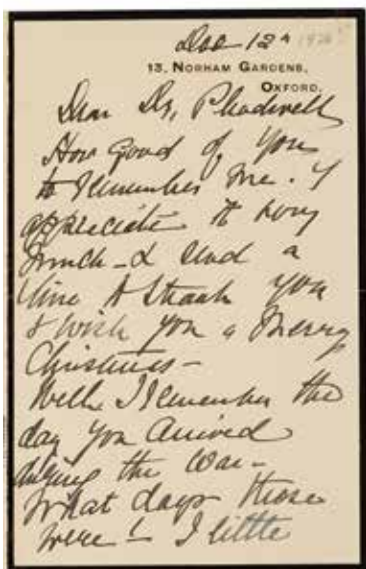 Dec 12th 1926
13, NORHAM GARDENS,
OXFORD.
Dear Dr,
How good of you
to remember me. I
appreciate it very
much - & send a
line to thank you
& wish you a Merry
Christmas -
Well I remember the
day you arrived
during the War -
What days those
were! - I little